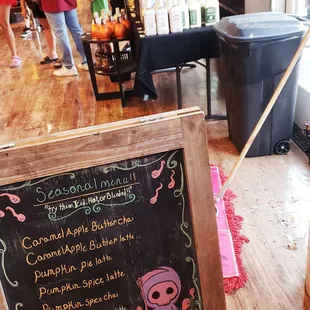 Seasonal menu!!
"try them Iced, Hot or Blended"
Caramel Apple Butter chai
Caramel Apple Butter latte
Pumpkin pie latte
Pumpkin Spice latte
Pumpkin Spice chai